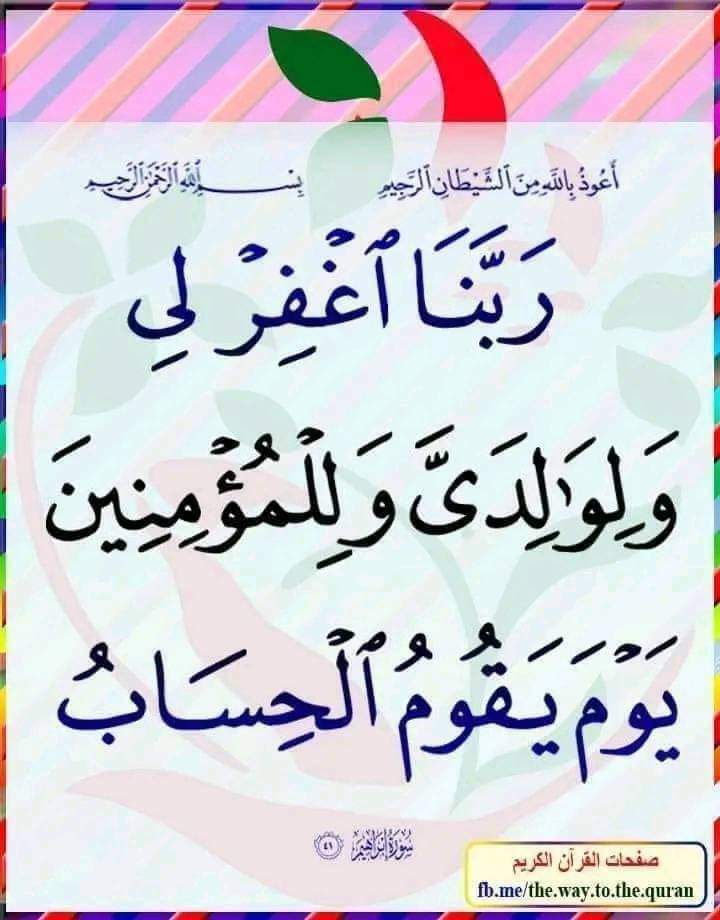 أَعُوذُ بِاللَّهِ مِنَ ٱلشَّيْطَانِ ٱلرَّجِيمِ بِسْمِ ٱللَّهِ ٱلرَّحْمَٰنِ ٱلرَّحِيمِ
رَبَّنَا ٱغْفِرْ لِى
وَلِوَٰلِدَىَّ وَلِلْمُؤْمِنِينَ
يَوْمَ يَقُومُ ٱلْحِسَابُ
سُورَةُ إِبْرَاهِيمَ ٤١
صفحات القرآن الكريم
fb.me/the.way.to.the.quran